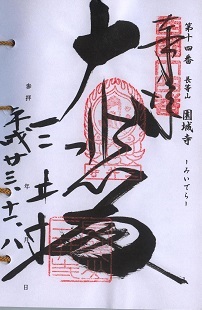 第十四番 長等山 園城寺
-みいでら-
奉拝
大悲殿
三井寺
参拝 年 月 日
平成廿三.十一.八